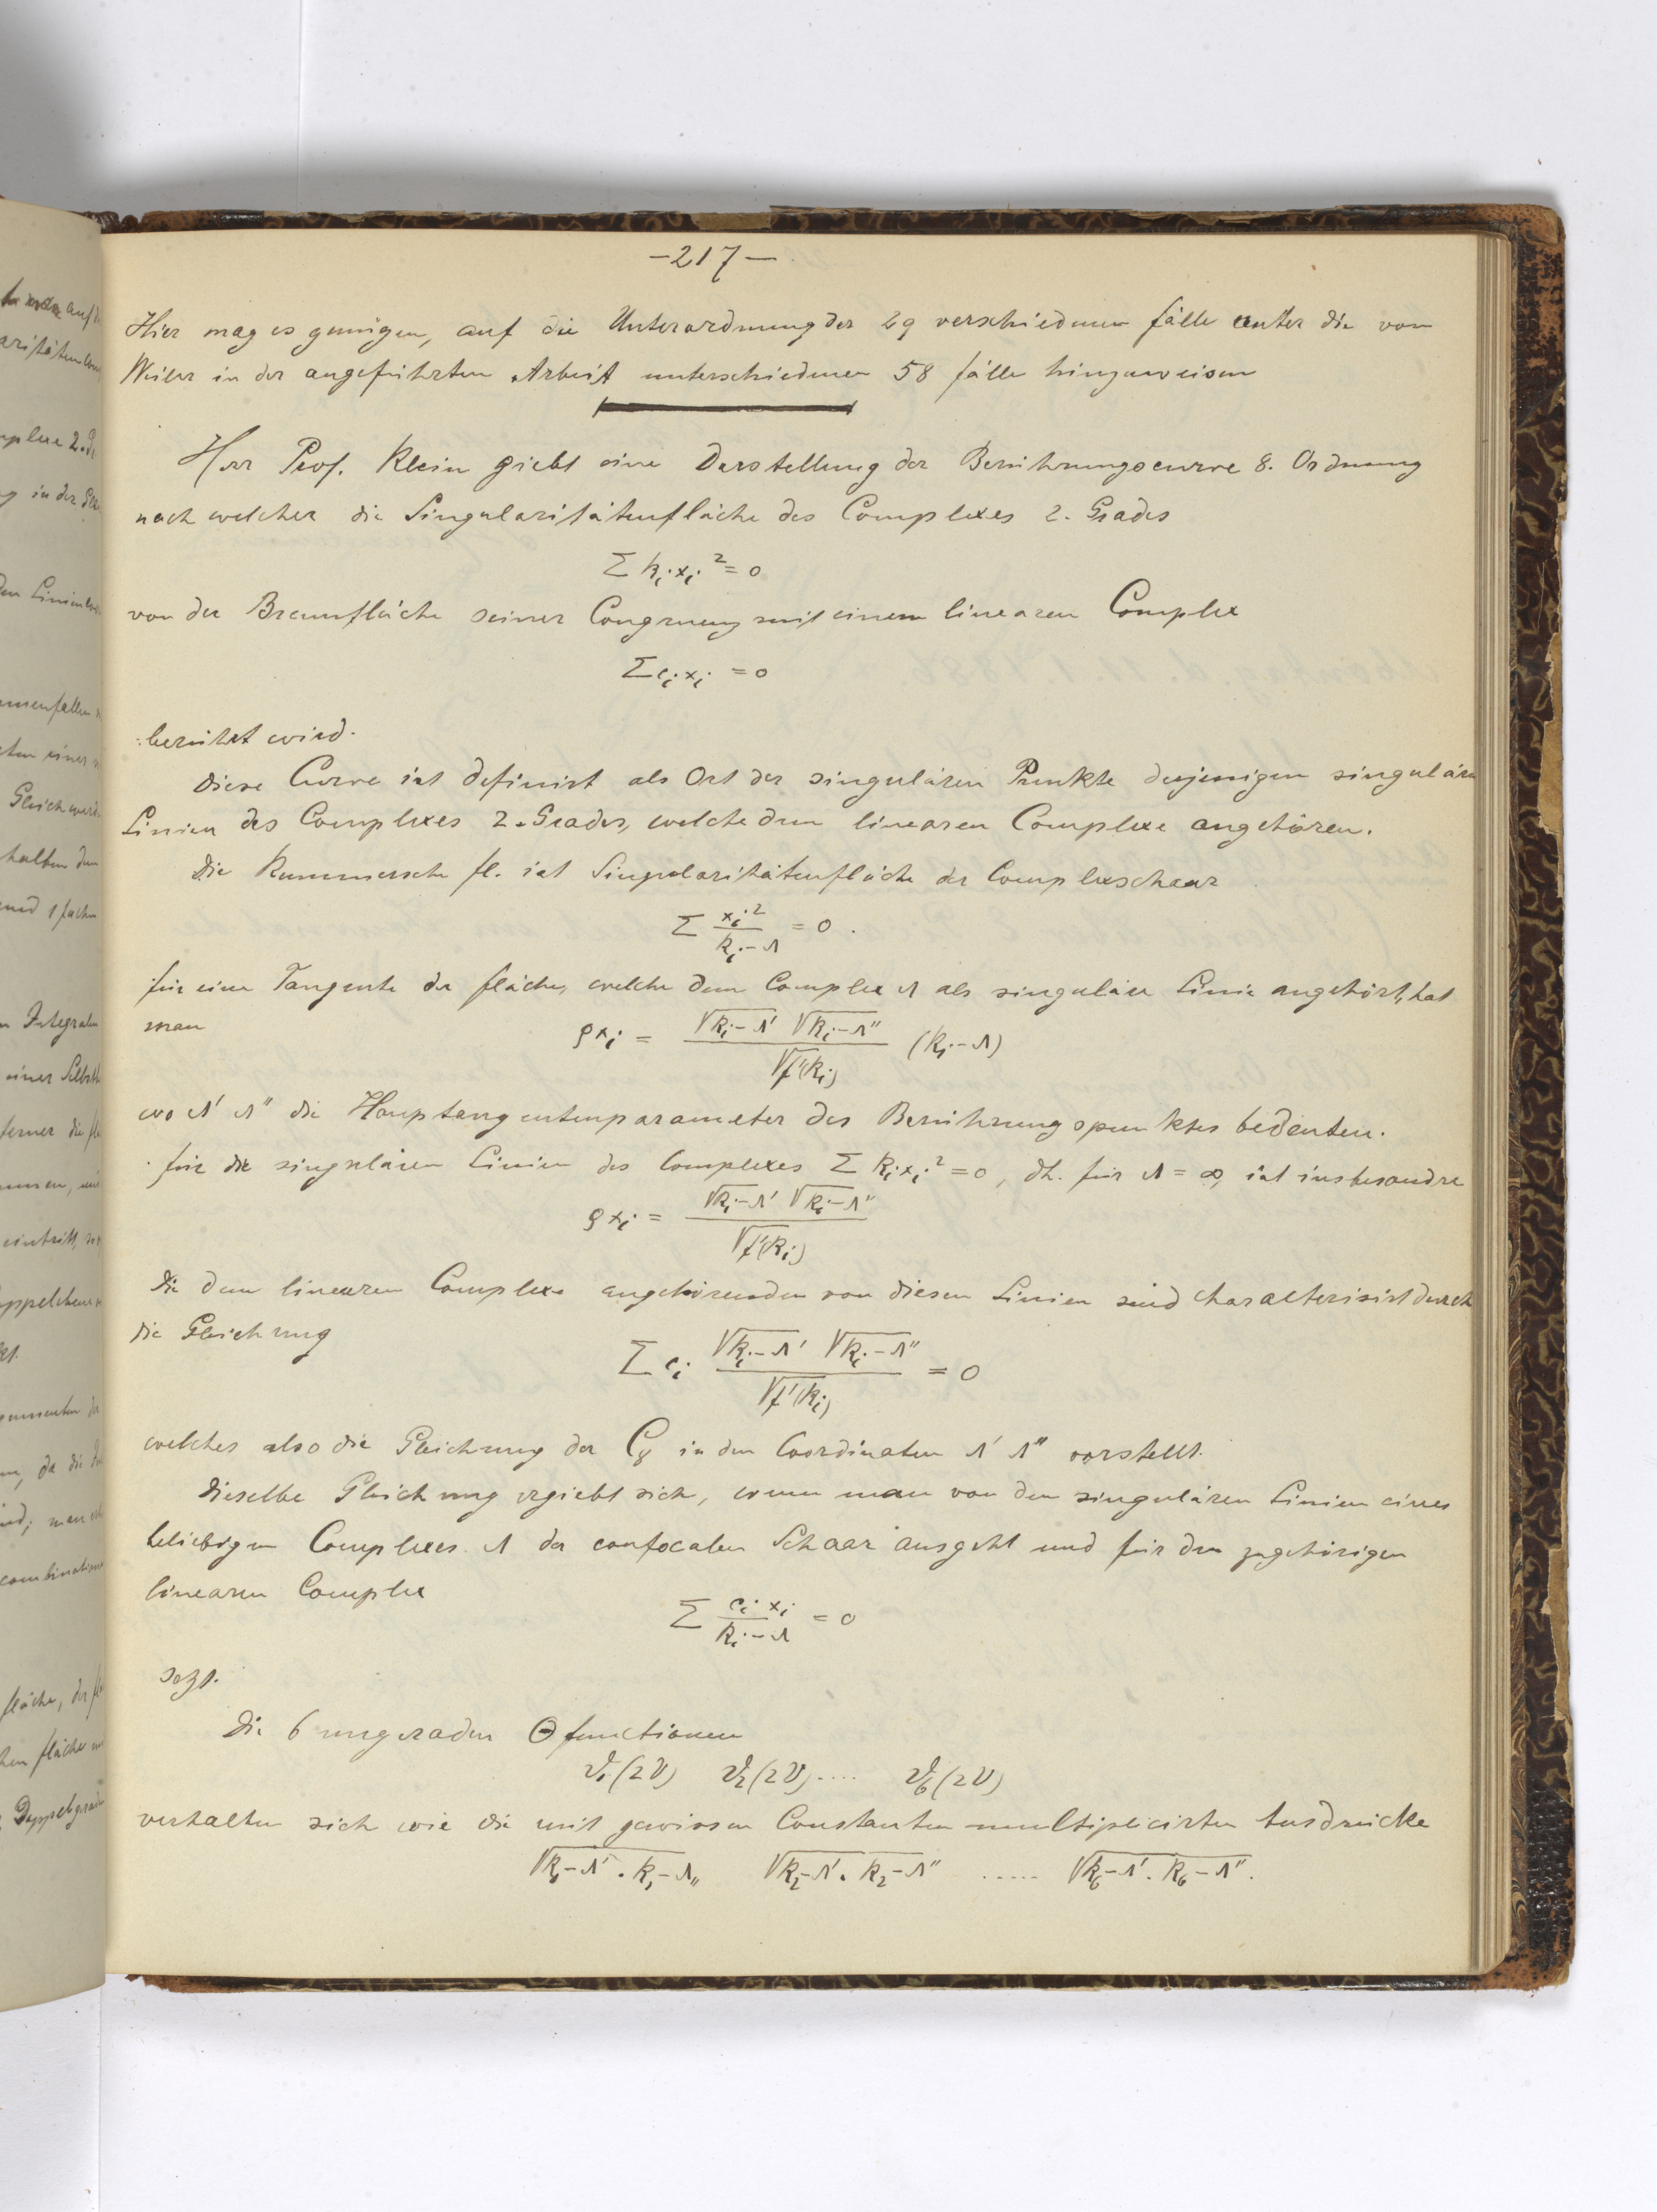 —217—
Hier mag es genügen, auf die Unterordnung der 29 verschiednen Fälle unter die von
Weiler in der angeführten Arbeit unterschiednen 58 Fälle hinzuweisen
Herr Prof. Klein giebt eine Darstellung der Berührungscurve 8. Ordnung
nach welcher die Singularitätenfläche des Complexes 2. Grades
Σ k_i x_i² = 0
von der Brennfläche seiner Congruenz mit einem linearen Complex
Σ c_i x_i = 0
berührt wird.
Diese Curve ist definirt als Ort der singulären Punkte derjenigen singulären
Linien des Complexes 2. Grades, welche dem linearen Complexe angehören.
Die Kummersche Fl. ist Singularitätenfläche der Complexschaar
Σ x_i² / (k_i − λ) = 0.
Für eine Tangente der Fläche, welche dem Complex λ als singuläre Linie angehört, hat
man
ρx_i = √(k_i − λ') √(k_i − λ'') / √f'(k_i) (k_i − λ)
wo λ' λ'' die Haupttangentenparameter des Berührungspunktes bedeuten.
Für die singulären Linien des Complexes Σ k_i x_i² = 0, dh. für λ = ∞, ist insbesondre
ρx_i = √(k_i − λ') √(k_i − λ'') / √f'(k_i)
Die dem linearen Complexe angehörenden von diesen Linien sind charakterisirt durch
die Gleichung
Σ c_i √(k_i − λ') √(k_i − λ'') / √f'(k_i) = 0
welches also die Gleichung der C₈ in den Coordinaten λ' λ'' vorstellt.
Dieselbe Gleichung ergiebt sich, wenn man von den singulären Linien eines
beliebigen Complexes λ der confocalen Schaar ausgeht und für den zugehörigen
linearen Complex
Σ c_i x_i / (k_i − λ) = 0
setzt.
Die 6 ungeraden Θ functionen
ϑ₁(2v) ϑ₂(2v) .... ϑ₆(2v)
verhalten sich wie die mit gewissen Constanten multiplicirten Ausdrücke
√(k₁ − λ' . k₁ − λ'') √(k₂ − λ' . k₂ − λ'') ..... √(k₆ − λ' . k₆ − λ'').